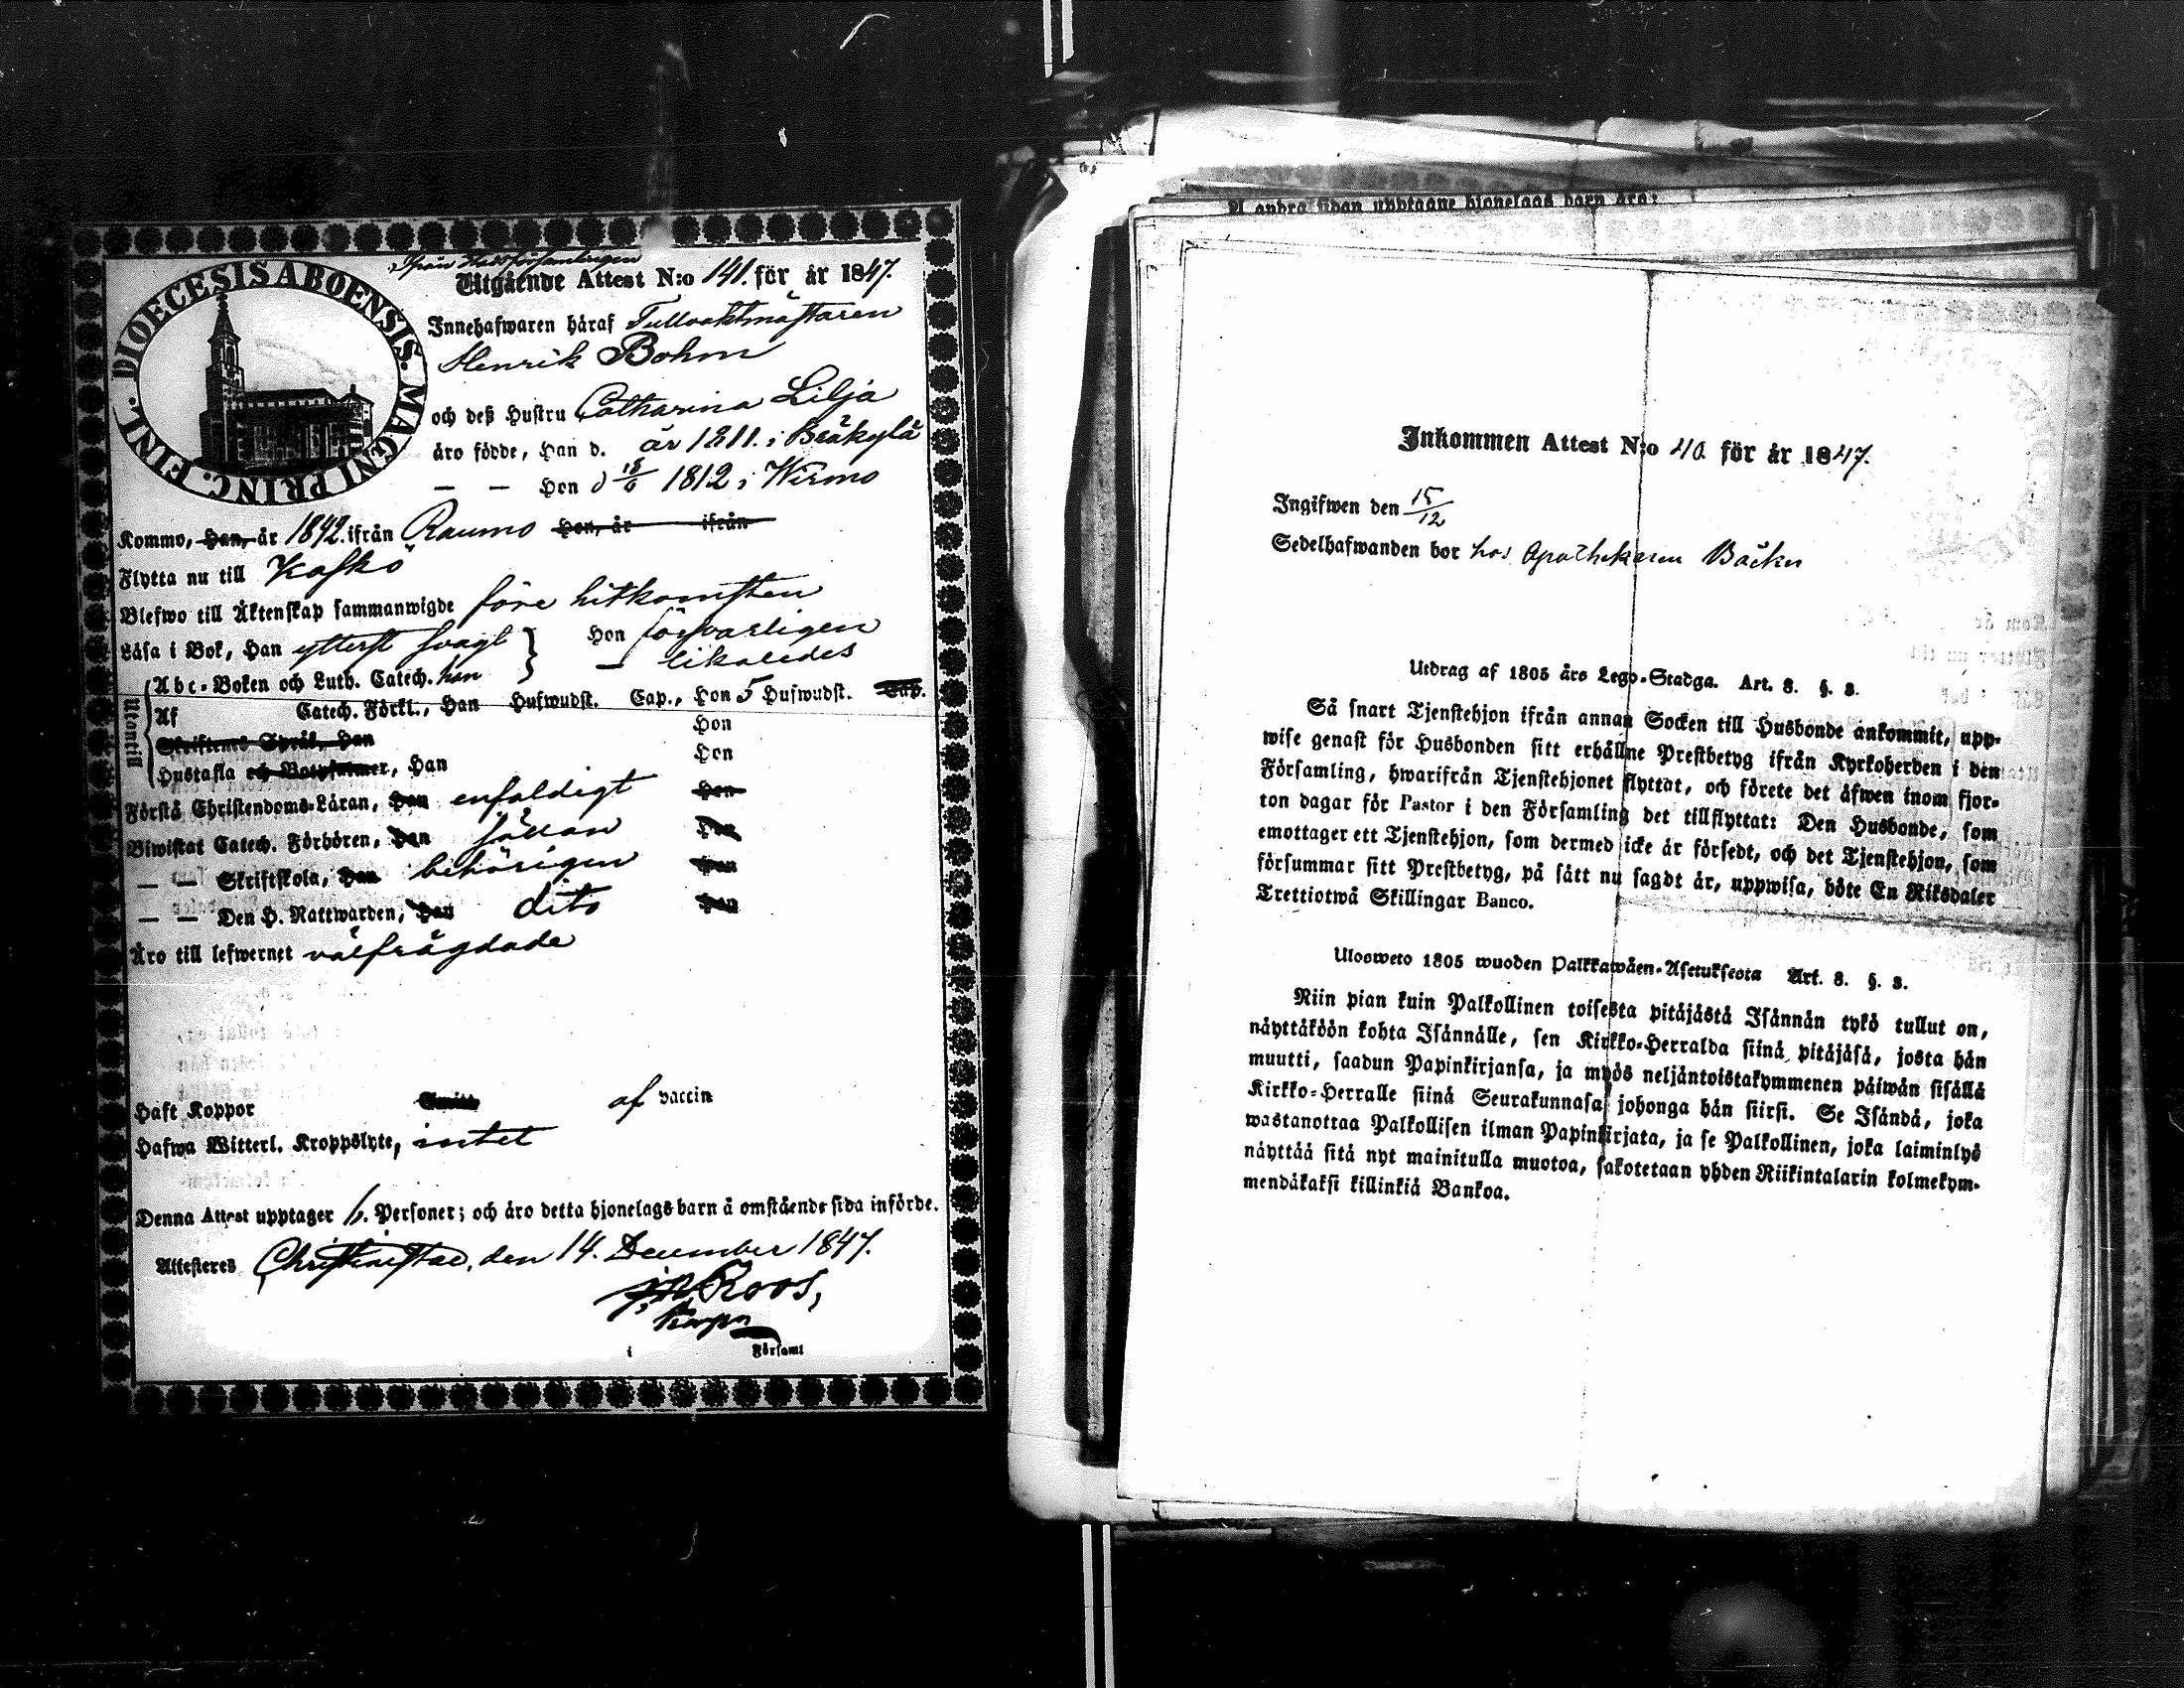 DIOECESIS ABOENSIS. MAGNI PRINC. FINL.
ifrån Stadsförsamlingen
Utgående Attest N:o 141. för år 1847.
Innehafwaren håraf Tullvaktmästaren
Henrik Bohm
och deß Hustru Catharina Lilja
åro födde, Han d. år 1811. i Bräkylä
— — Hon d 18/6 1812 i Wirmo
Kommo, Han, år 1842. ifrån Raumo Hon, år ifrån
Flytta nu till Kaskö
Blefwo till Åktenskap sammanwigde före hitkomsten
Låsa i Bok, Han ytterst svagt } Hon försvarligen
Abc-Boken och Luth. Catech. han — likaledes
Utantill
Af Catech. Förkl., Han Hufwudst. Cap., Hon 5 Hufwudst. Cap.
Skriftens Språk, Han Hon
Hustafla och Botpsalmer, Han Hon
Förstå Christendoms-Låran, Han enfaldigt Hon
Biwistat Catech. Förhören, Han sällan Hon
— — Skriftskola, Han behörigen Hon
— — Den H. Nattwarden, Han dito Hon
Åro till lefwernet välfrägdade
Haft Koppor af vaccin
Hafwa Witterl. Kroppslyte, intet
Denna Attest upptager 6. Personer; och åro detta hjonelags barn å omstående sida införde.
Attesteras Christinestad, den 14. December 1847.
Roos,
i Församl
Å andra sidan upptagne hjonelags barn åro:
Inkommen Attest N:o 40 för år 1847.
Ingifwen den 15/12
Sedelhafwanden bor hos Apothekaren Bäcker
Utdrag af 1805 års Lego-Stadga. Art. 8. §. 3.
Så snart Tjenstehjon ifrån annan Socken till Husbonde ankommit, upp-
wise genast för Husbonden sitt erhållne Prestbetyg ifrån Kyrkoherden i den
Församling, hwarifrån Tjenstehjonet flyttat, och förete det åfwen inom fjor-
ton dagar för Pastor i den Församling det tillflyttat: Den Husbonde, som
emottager ett Tjenstehjon, som dermed icke år försedt, och det Tjenstehjon, som
försummar sitt Prestbetyg, på sått nu sagdt år, uppwisa, böte En Riksdaler
Trettiotwå Skillingar Banco.
Ulosweto 1805 wuoden Palkkawåen-Asetuksesta Art. 8. §. 3.
Niin pian kuin Palkollinen toisesta pitåjåstå Isånnån tykö tullut on,
nåyttåköön kohta Isånnålle, sen Kirkko-Herralda siinå pitåjåså, josta hån
muutti, saadun Papinkirjansa, ja myös neljåntoistakymmenen påiwån sisållå
Kirkko-Herralle siinå Seurakunnasa johonga hån siirsi. Se Isåndå, joka
wastanottaa Palkollisen ilman Papinkirjata, ja se Palkollinen, joka laiminlyö
nåyttåå sitå nyt mainitulla muotoa, sakotetaan yhden Riikintalarin kolmekym-
mendåkaksi killinkiå Bankoa.